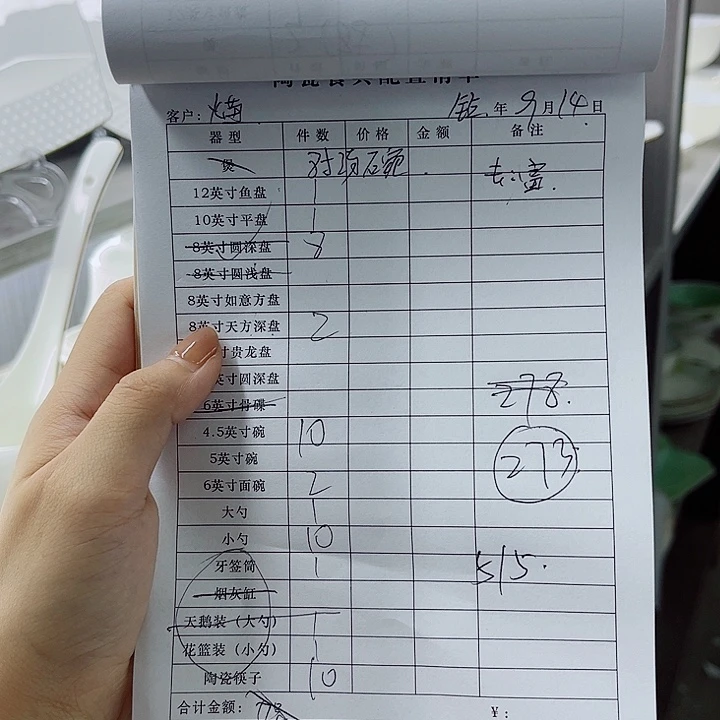 陶瓷餐具配置清单
客户: 年 9月14日
器型 件数 价格 金额 备注
煲
12英寸鱼盘 1
10英寸平盘 1
8英寸圆深盘 8
8英寸圆浅盘
8英寸如意方盘
8英寸天方深盘 2
寸贵龙盘
英寸圆深盘 278.
6英寸骨碟
4.5英寸碗 10
5英寸碗 273
6英寸面碗 2
大勺 1
小勺 10
牙签筒 1 515.
烟灰缸
天鹅装（大勺） 1
花篮装（小勺） 1
陶瓷筷子 10
合计金额: ¥: